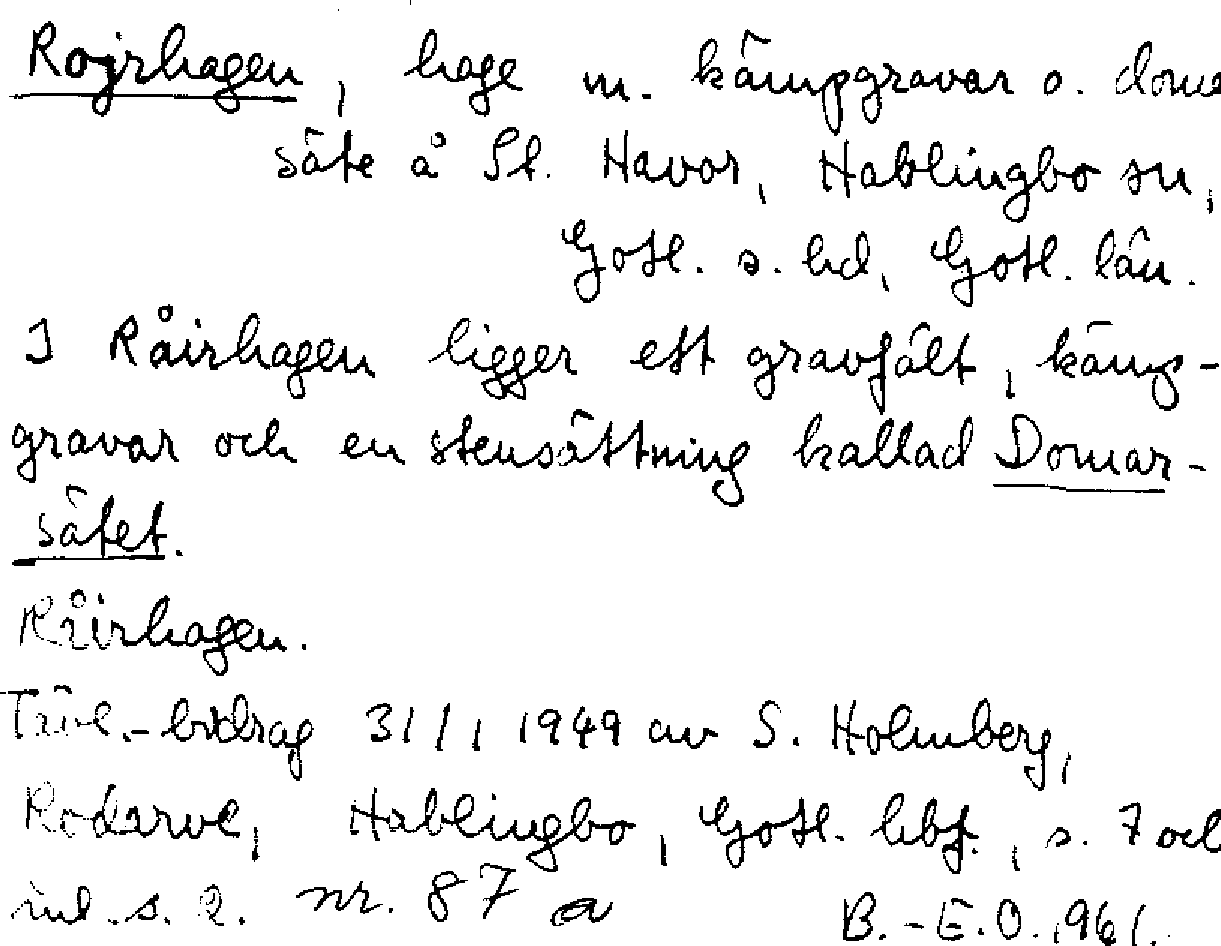 Rojrhagen, hage m. kämpgravar o. dome
säte å St. Havor, Hablingbo sn,
Gotl. s. hd, Gotl. län.
I Råirhagen ligger ett gravfält, kämp-
gravar och en stensättning kallad Domar-
sätet.
Råirhagen.
Tävl.-bidrag 31/1 1949 av S. Holmberg,
Rodarve, Hablingbo, Gotl. hbf., s. 7 och
inl. s. 2. nr. 87 a
B.-E.O. 1961.